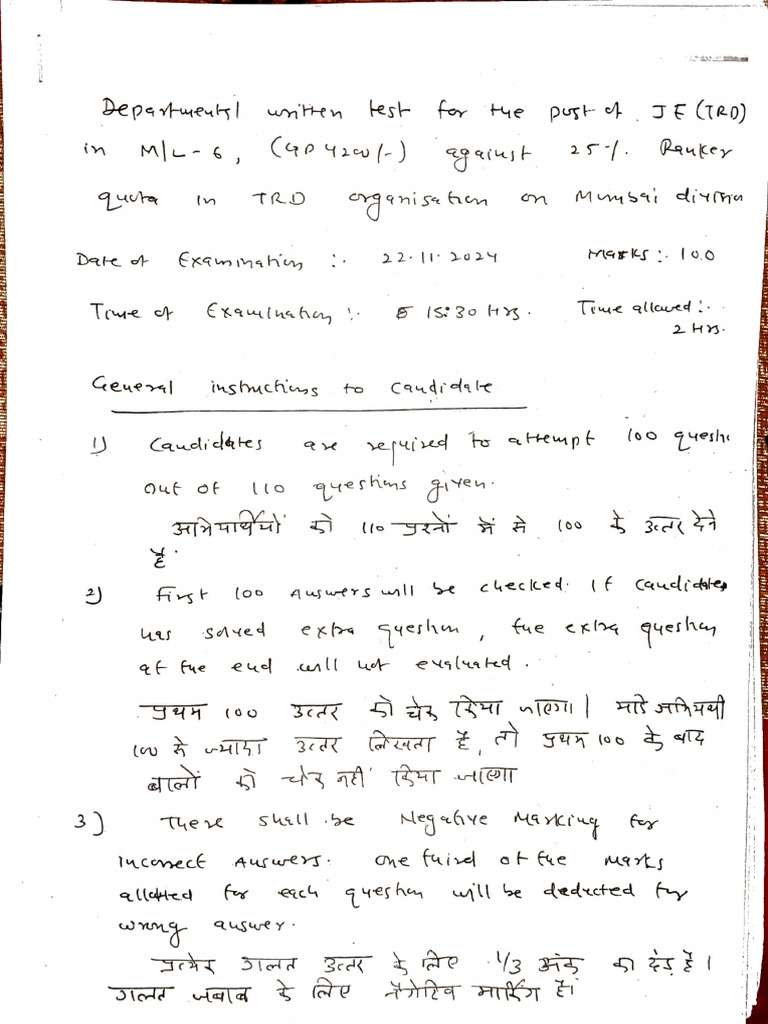 Departmental written test for the post of JE (TRD)
in M/L-6, (GP 4200/-) against 25% Ranker
quota in TRD organisation on Mumbai division
Date of Examination :- 22.11.2024 Marks :- 100
Time of Examination :- 15:30 Hrs. Time allowed :-
2 Hrs.
General instructions to candidate
1) Candidates are required to attempt 100 questi
out of 110 questions given.
अभियार्थियों को 110 प्रश्नों में से 100 के उत्तर देने
है.
2) First 100 Answers will be checked. If candidates
has solved extra question, the extra question
at the end will not evaluated.
प्रथम 100 उत्तर को चेक किया जाएगा। यदि अभियर्थी
100 से ज्यादा उत्तर लिखता है, तो प्रथम 100 के बाद
वालों को चेक नहीं किया जाएगा
3) There shall be Negative Marking for
incorrect Answers. One third of the marks
allotted for each question will be deducted for
wrong answer.
प्रत्येक गलत उत्तर के लिए 1/3 अंक का दंड है।
गलत जबाब के लिए नैगेटिव मार्किंग है।